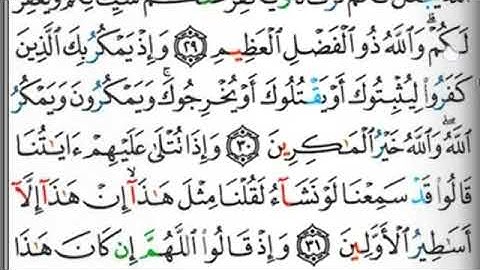 لَكُمْ ۗ وَاللَّهُ ذُو الْفَضْلِ الْعَظِيمِ ٢٩ وَإِذْ يَمْكُرُ بِكَ الَّذِينَ
كَفَرُوا لِيُثْبِتُوكَ أَوْ يَقْتُلُوكَ أَوْ يُخْرِجُوكَ ۚ وَيَمْكُرُونَ وَيَمْكُرُ
اللَّهُ ۖ وَاللَّهُ خَيْرُ الْمَاكِرِينَ ٣٠ وَإِذَا تُتْلَىٰ عَلَيْهِمْ ءَايَاتُنَا
قَالُوا قَدْ سَمِعْنَا لَوْ نَشَاءُ لَقُلْنَا مِثْلَ هَٰذَا ۙ إِنْ هَٰذَا إِلَّا
أَسَاطِيرُ الْأَوَّلِينَ ٣١ وَإِذْ قَالُوا اللَّهُمَّ إِن كَانَ هَٰذَا